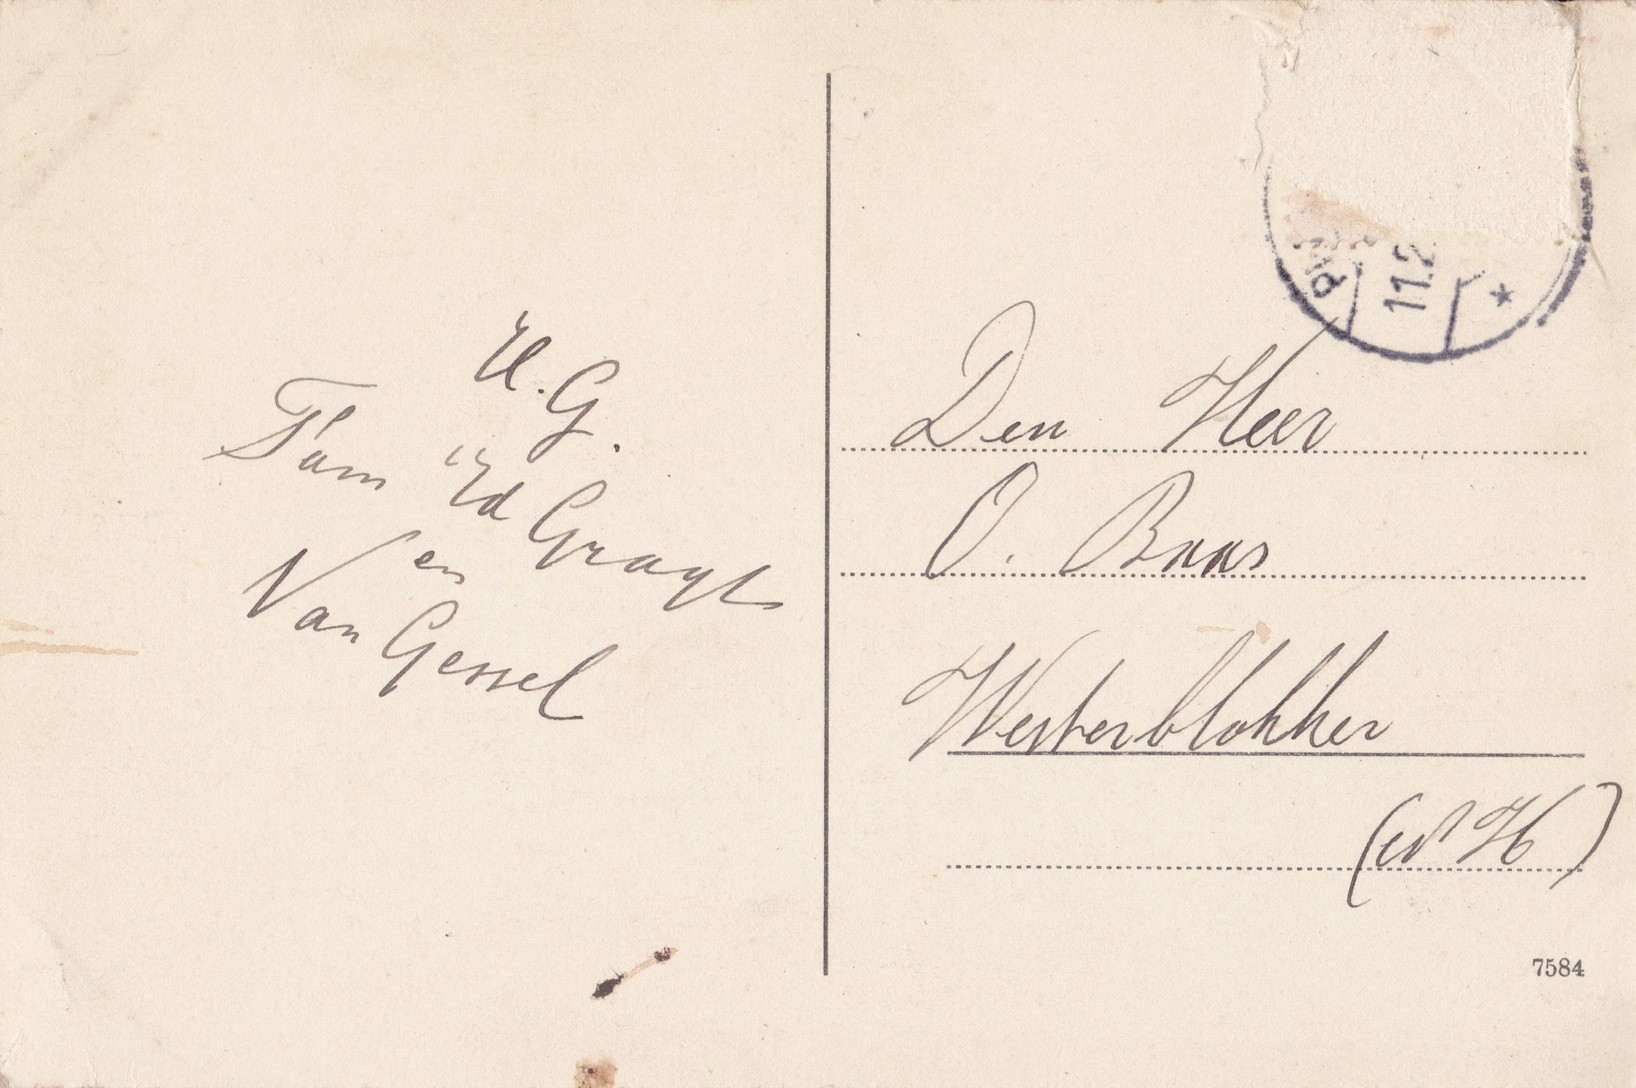 H. G.
Fam Ed Gragt
en
Van Gessel
11.2
Den Heer
O. Baas
Westerblokker
(N H)
7584